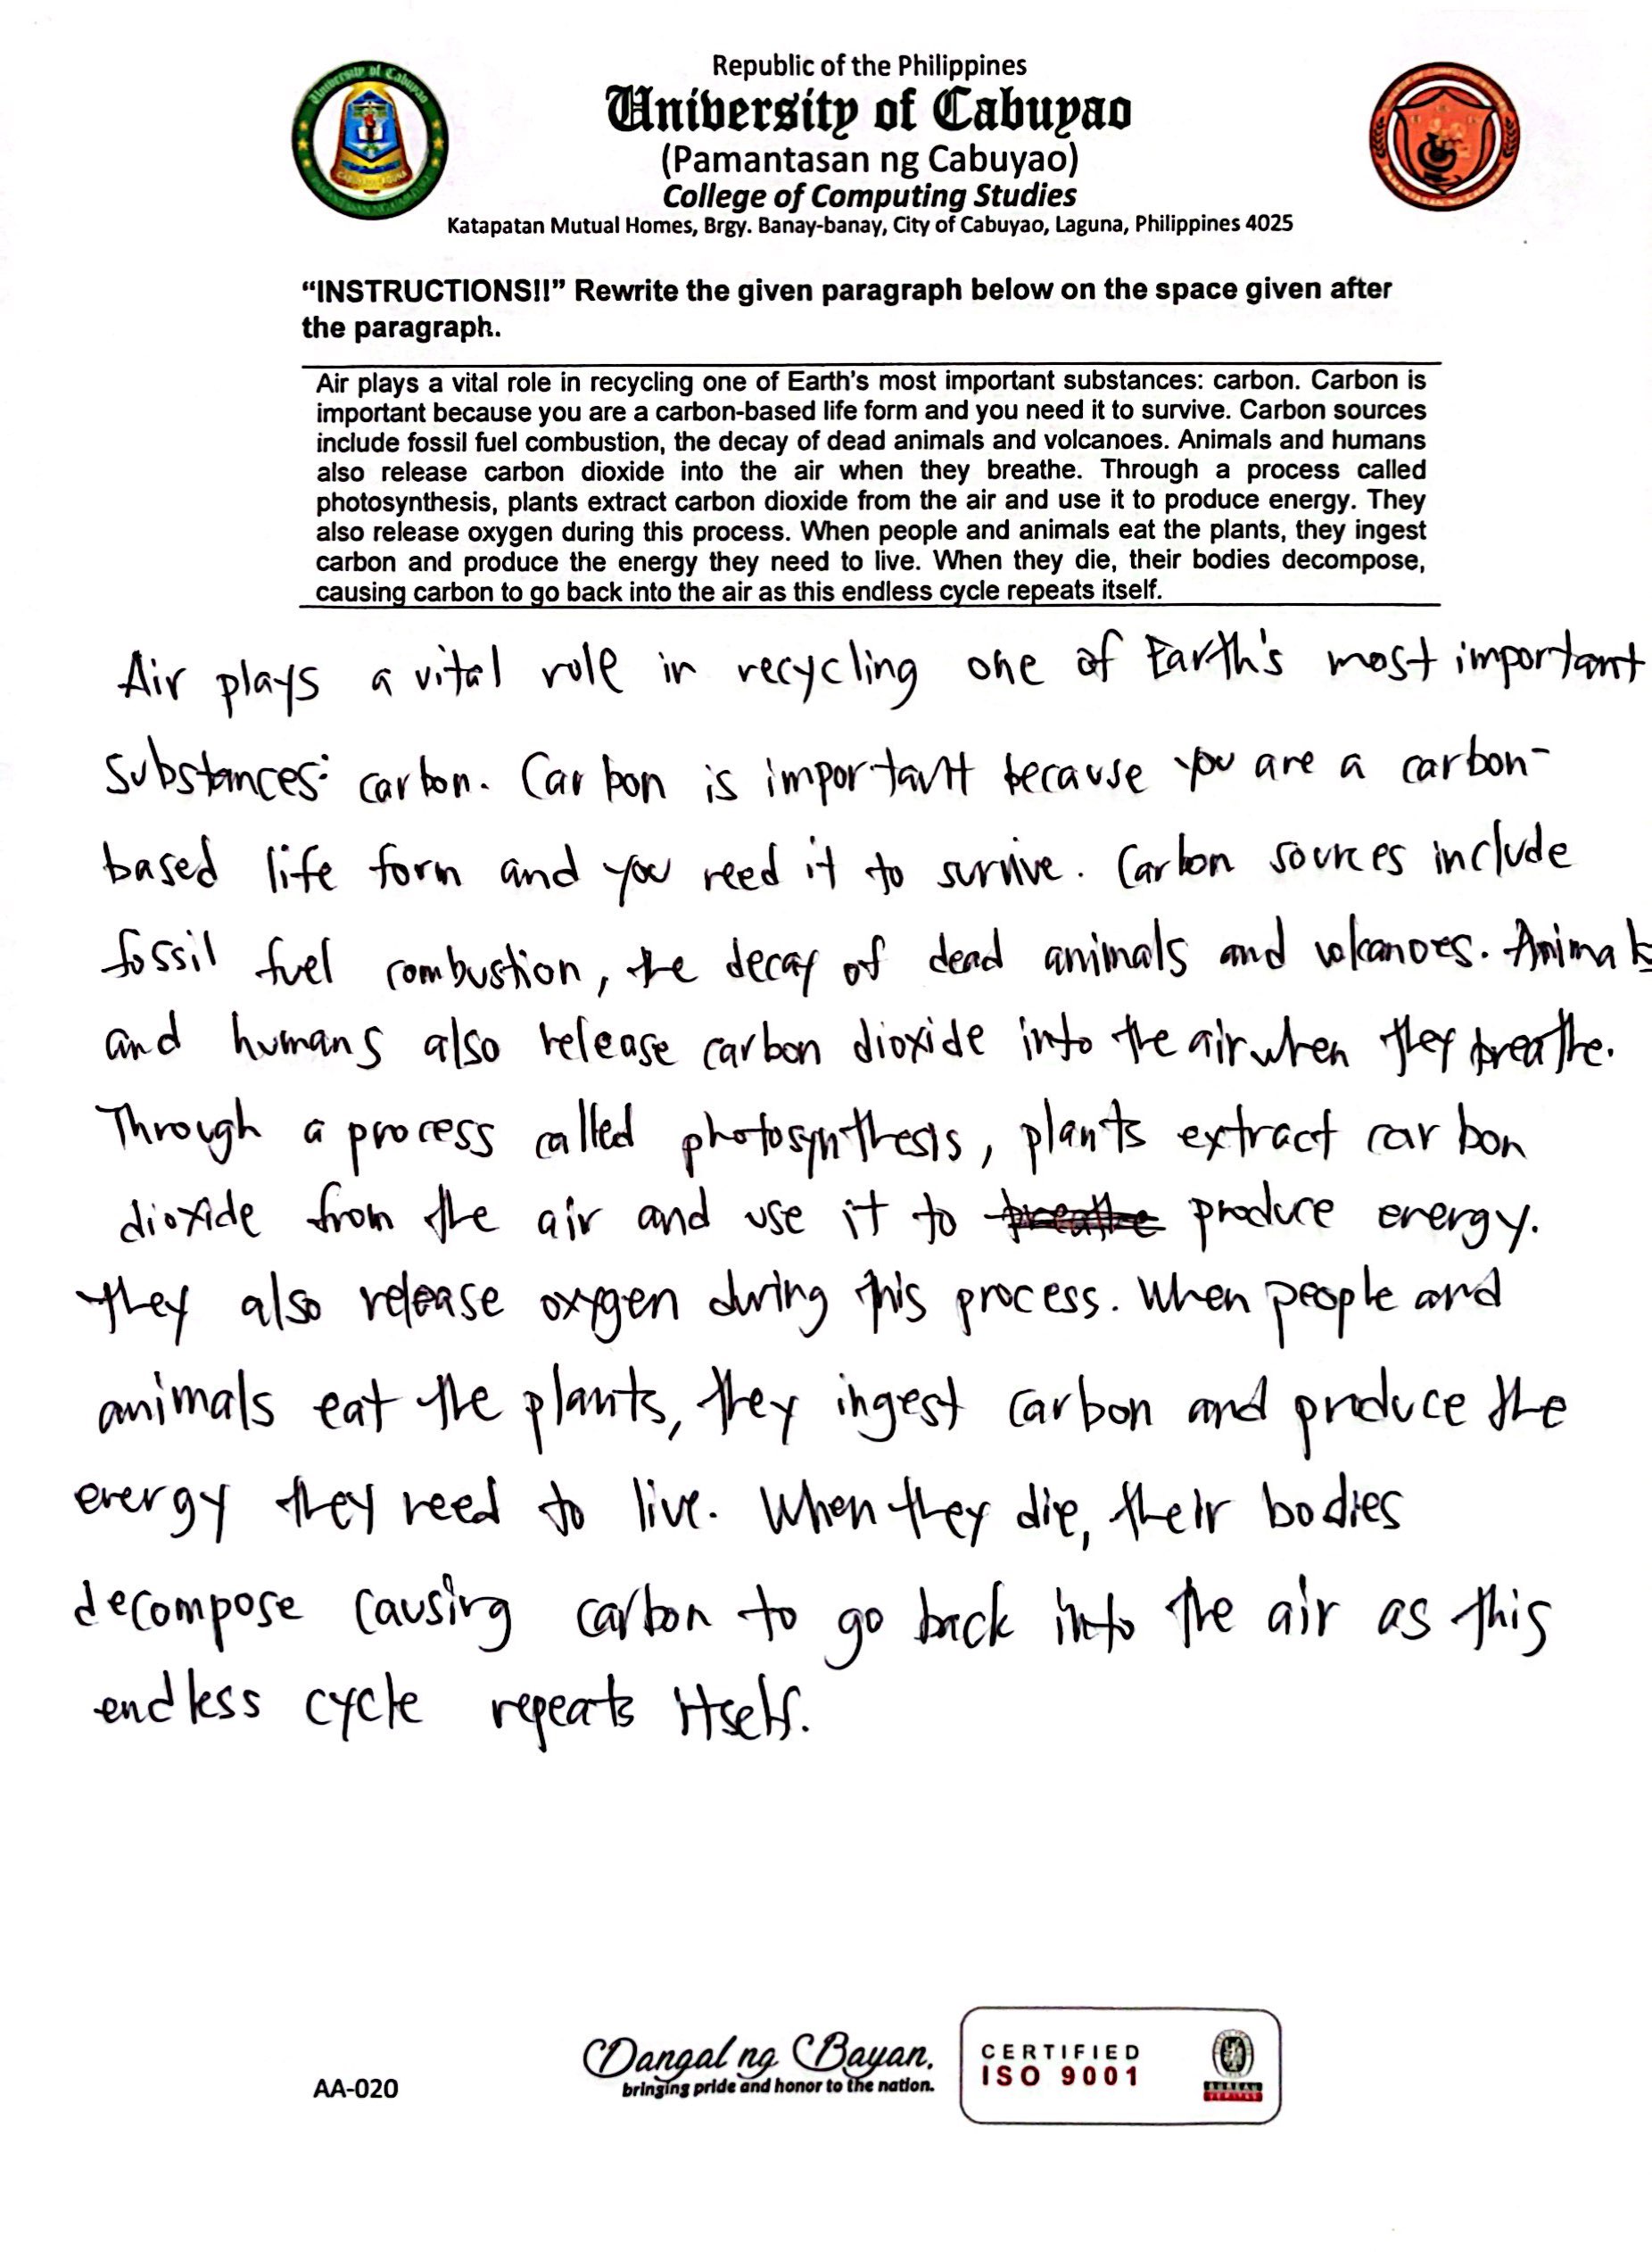 Republic of the Philippines
University of Cabuyao
(Pamantasan ng Cabuyao)
College of Computing Studies
Katapatan Mutual Homes, Brgy. Banay-banay, City of Cabuyao, Laguna, Philippines 4025
“INSTRUCTIONS!!” Rewrite the given paragraph below on the space given after
the paragraph.
Air plays a vital role in recycling one of Earth's most important substances: carbon. Carbon is
important because you are a carbon-based life form and you need it to survive. Carbon sources
include fossil fuel combustion, the decay of dead animals and volcanoes. Animals and humans
also release carbon dioxide into the air when they breathe. Through a process called
photosynthesis, plants extract carbon dioxide from the air and use it to produce energy. They
also release oxygen during this process. When people and animals eat the plants, they ingest
carbon and produce the energy they need to live. When they die, their bodies decompose,
causing carbon to go back into the air as this endless cycle repeats itself.
Air plays a vital role in recycling one of Earth's most important
substances: carbon. Carbon is important because you are a carbon-
based life form and you need it to survive. Carbon sources include
fossil fuel combustion, the decay of dead animals and volcanoes. Animals
and humans also release carbon dioxide into the air when they breathe.
Through a process called photosynthesis, plants extract carbon
dioxide from the air and use it to produce energy.
They also release oxygen during this process. When people and
animals eat the plants, they ingest carbon and produce the
energy they need to live. When they die, their bodies
decompose causing carbon to go back into the air as this
endless cycle repeats itself.
AA-020
Dangal ng Bayan.
bringing pride and honor to the nation.
CERTIFIED
ISO 9001
BUREAU
VERITAS